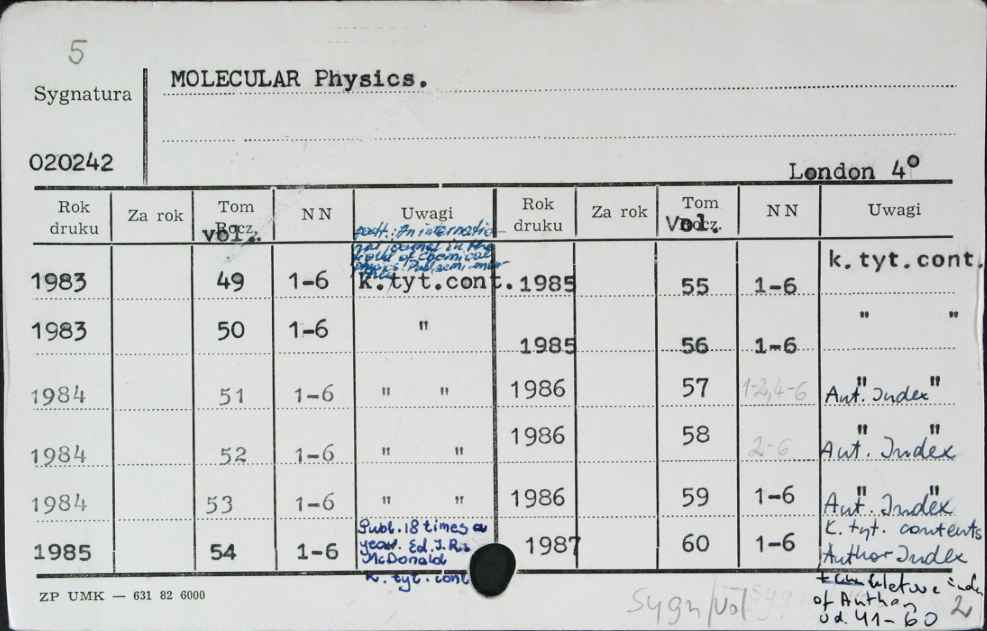 5
MOLECULAR Physics.
Sygnatura
020242
London 4º
Rok druku Za rok Tom Rocz. vol. NN Uwagi Rok druku Za rok Tom Rocz. Vol. NN Uwagi
podt.: An international journal in the field of chemical physics. Publ. semi-
1983 49 1-6 k.tyt.cont. 1985 55 1-6 k.tyt.cont.
1983 50 1-6 " 1985 56 1-6 " "
1984 51 1-6 " " 1986 57 1-2,4-6 " " Aut. Index
1984 52 1-6 " " 1986 58 2-6 " " Aut. Index
1984 53 1-6 " " 1986 59 1-6 " " Aut. Index
1985 54 1-6 Publ. 18 times a year. Ed. I.R. McDonald k. tyt. cont 1987 60 1-6 K. tyt. contents Author Index
of Author
vol. 41-60
ZP UMK — 631 82 6000
Sygn/vol
2